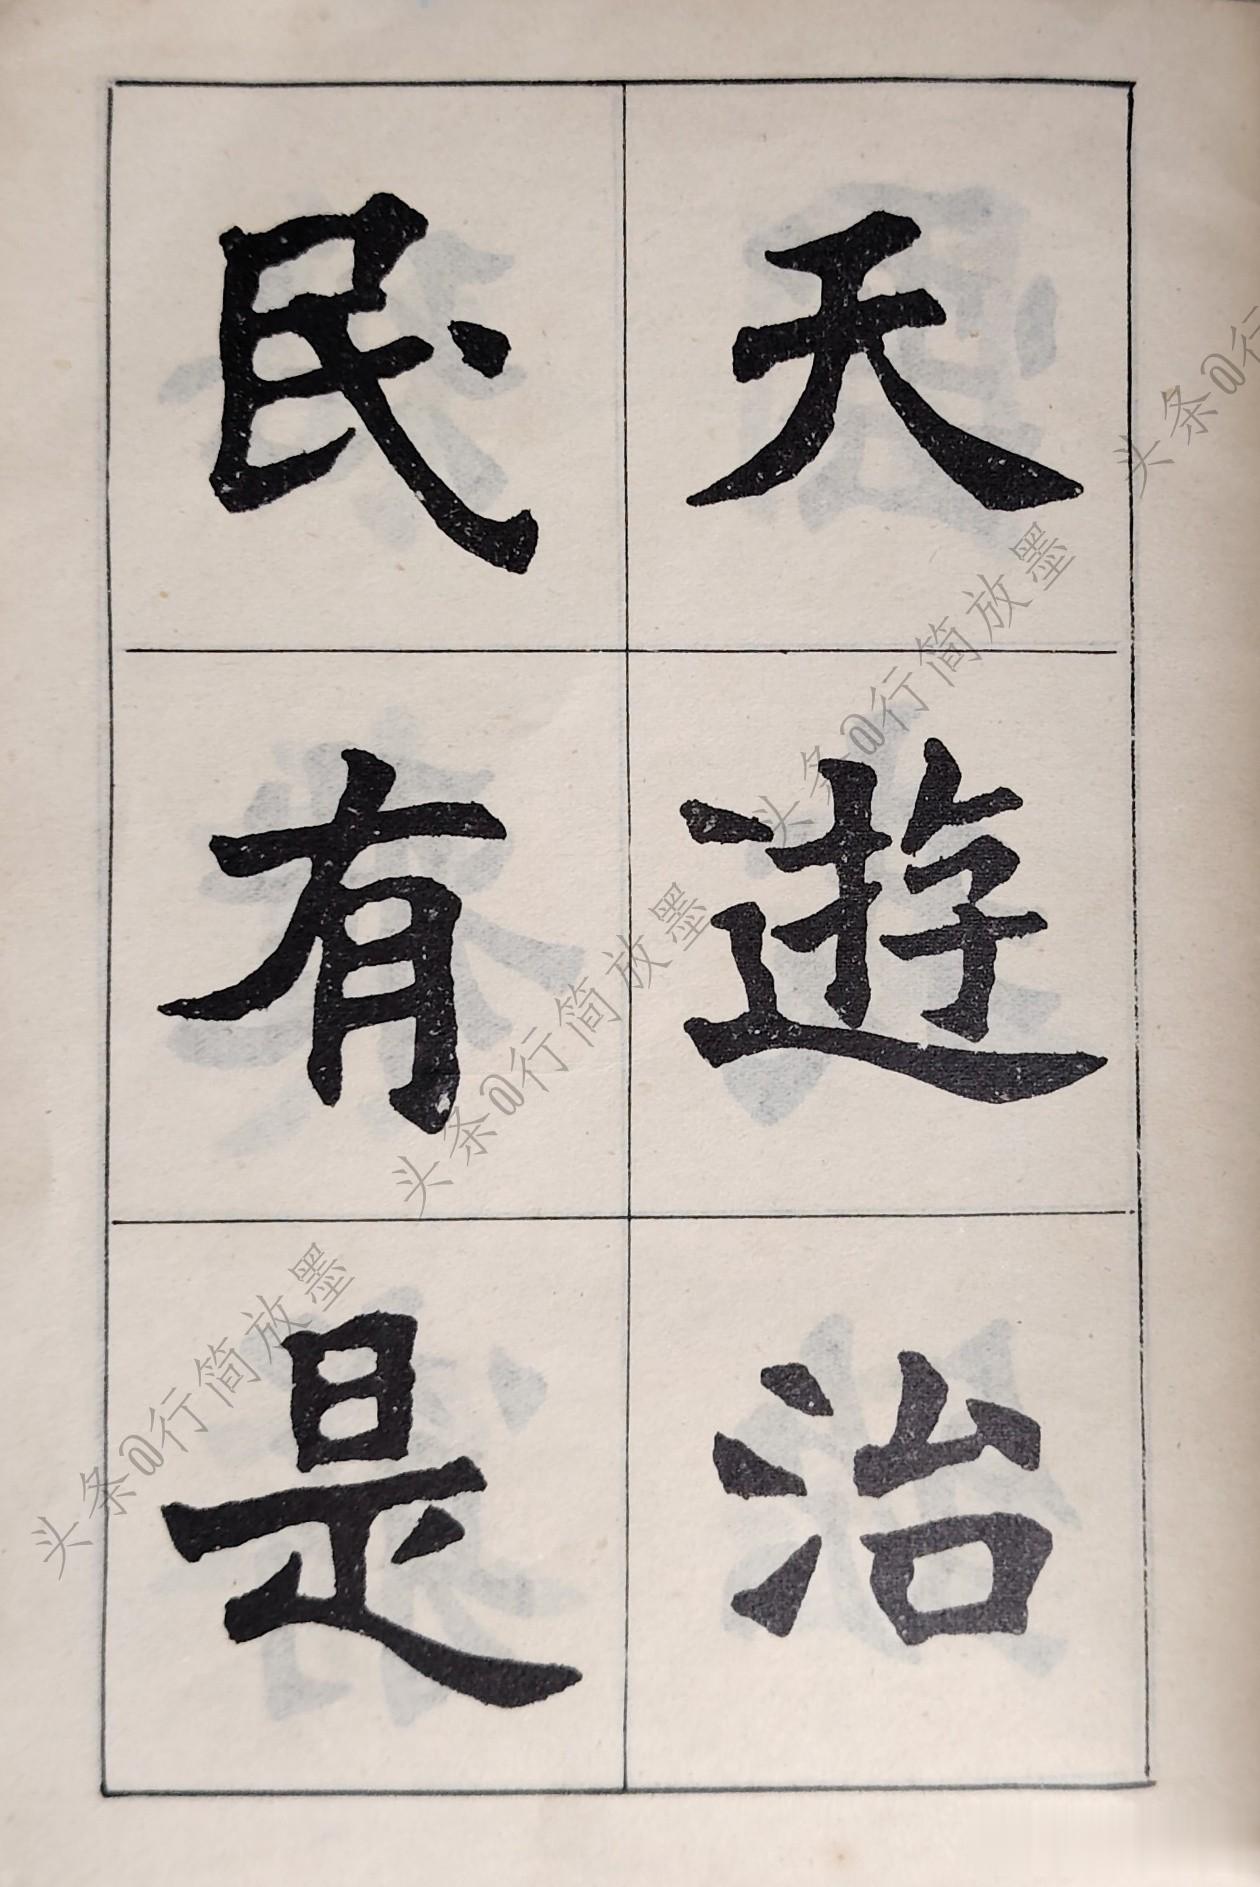 天遊治
民有是
头条@行简放墨
头条@行简放墨
头条@行简放墨
头条@行